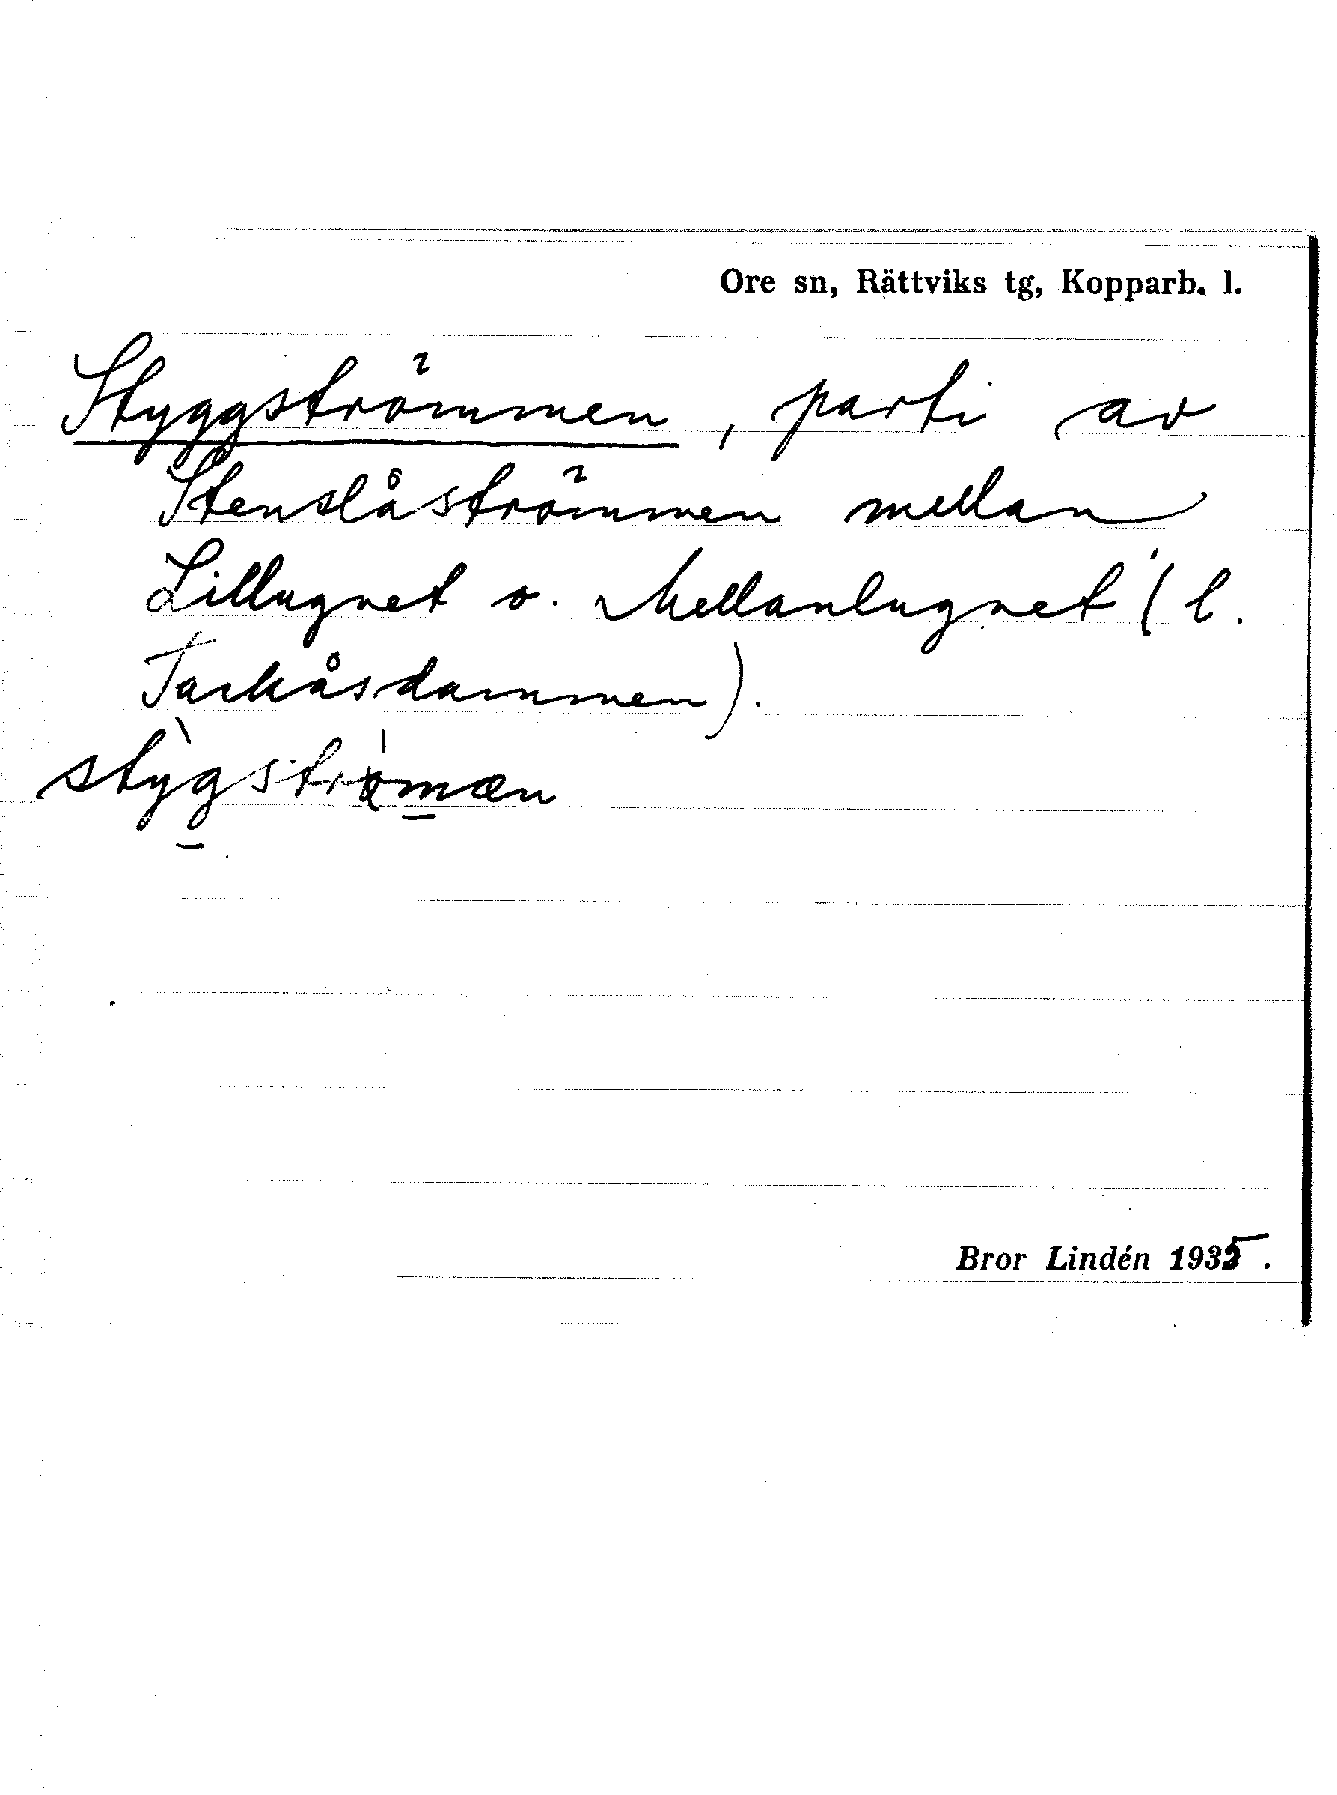 Ore sn, Rättviks tg, Kopparb. l.
Styggströmmen, parti av
Stenslåströmmen mellan
Lillugnet o. Mellanlugnet (l.
Tackåsdammen).
Bror Lindén 1935.